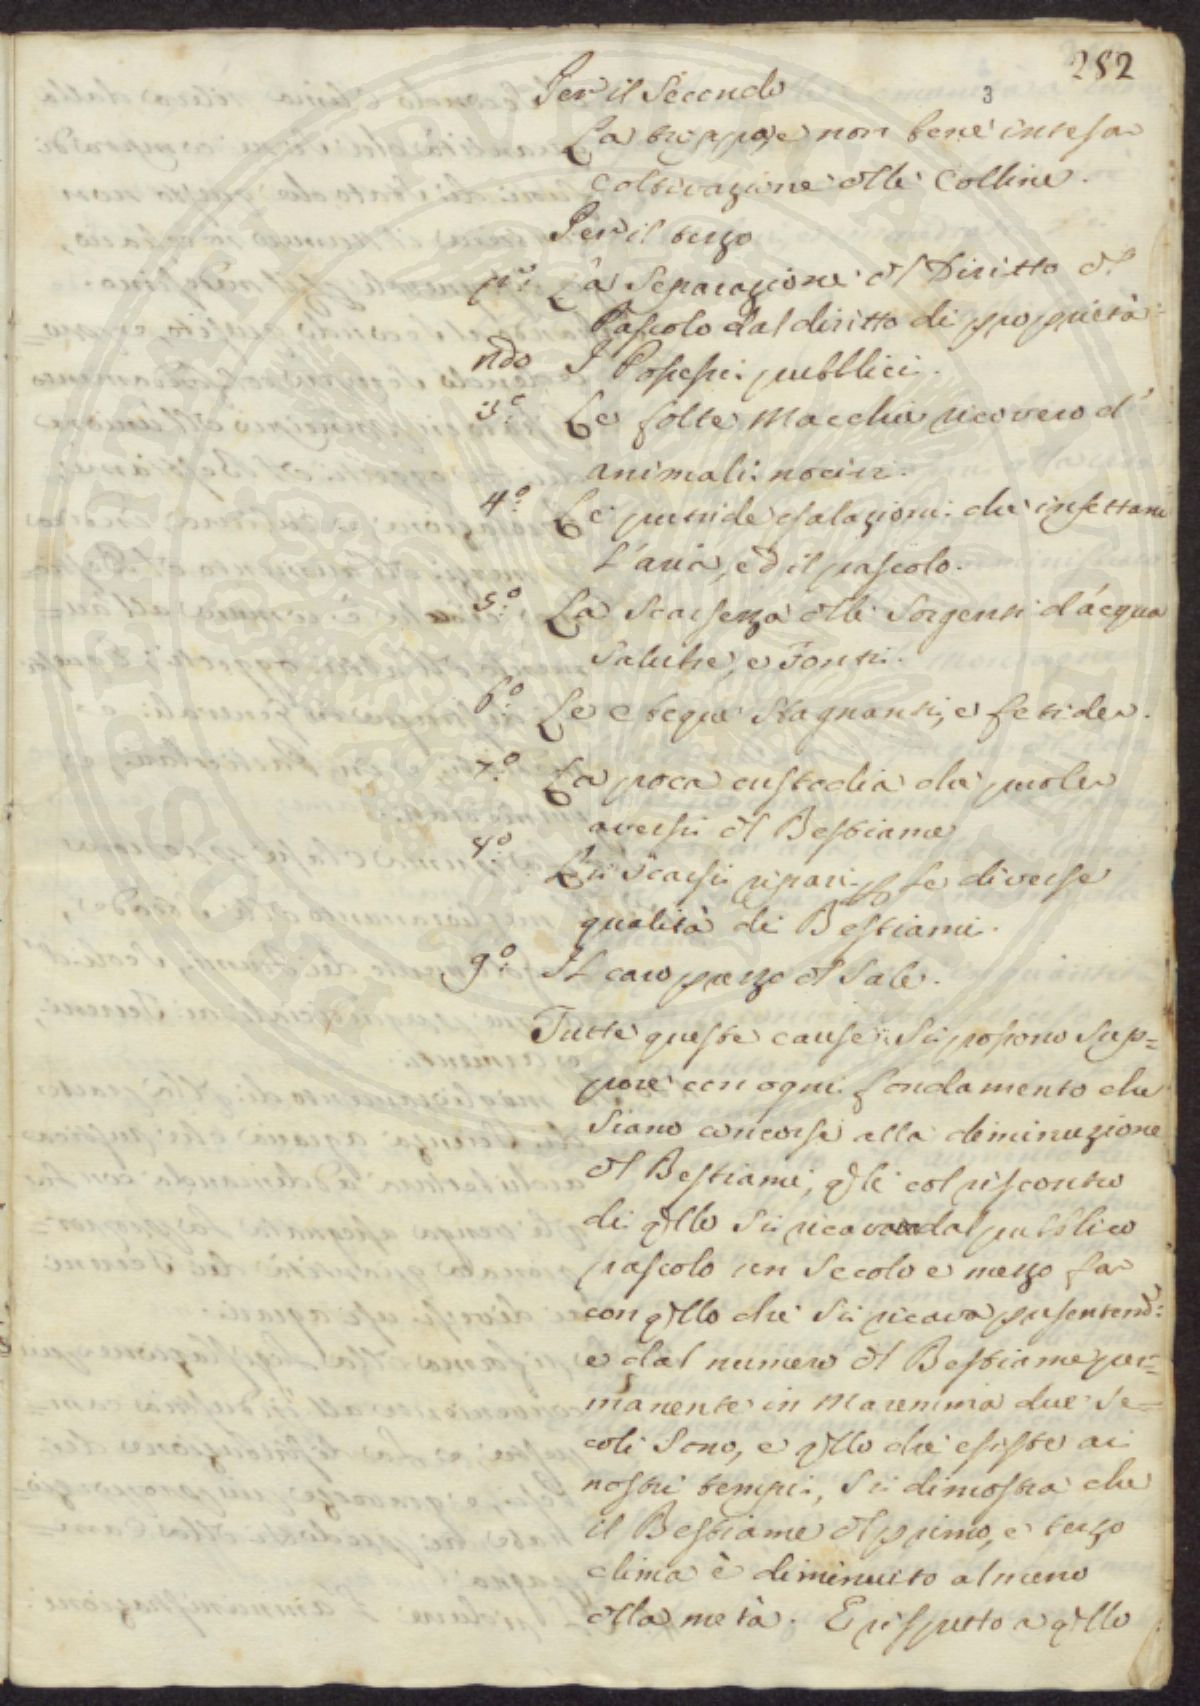 282
3
Per il Secondo
La troppo, e non bene intesa
Coltivazione dlle Colline.
Per il terzo
pmo. La Separazione dl Diritto dl
Pascolo dal diritto di proprietà.
ndo I Possessi pubblici.
3o. Le folte Macchie ricovero d'
animali nocivi.
4o. Le putride esalazioni che infettano
l'aria, ed il pascolo.
5o. La Scarsezza dlle Sorgenti d'acqua
Salubre, e Fonti.
6o. Le Acque Stagnanti, e fetide.
7o. La poca custodia che puole
aversi dl Bestiame
8o. Li Scarsi ripari p le diverse
qualità di Bestiami.
9o. Il caro prezzo dl Sale.
Tutte queste cause si possono Sup=
porre con ogni fondamento che
Siano concorse alla diminuzione
dl Bestiame, qli col riscontro
di qllo Si ricavava dal pubblico
pascolo un Secolo e mezzo fa
con qllo che Si ricava presentem:
e dal numero dl Bestiame per=
manente in Maremma due Se=
coli Sono, e qllo che esiste ai
nostri tempi, Si dimostra che
il Bestiame dl primo, e terzo
clima è diminuito almeno
dlla metà. E rispetto a qllo